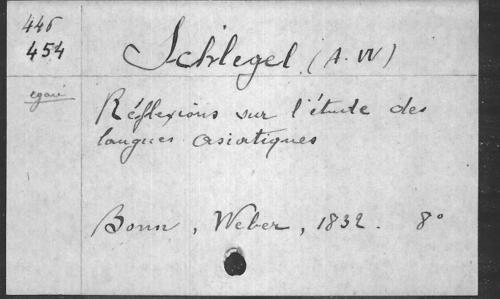 446
454
Schlegel (A. W)
égaré
Réflexions sur l'étude des
langues asiatiques
Bonn, Weber, 1832. 8°